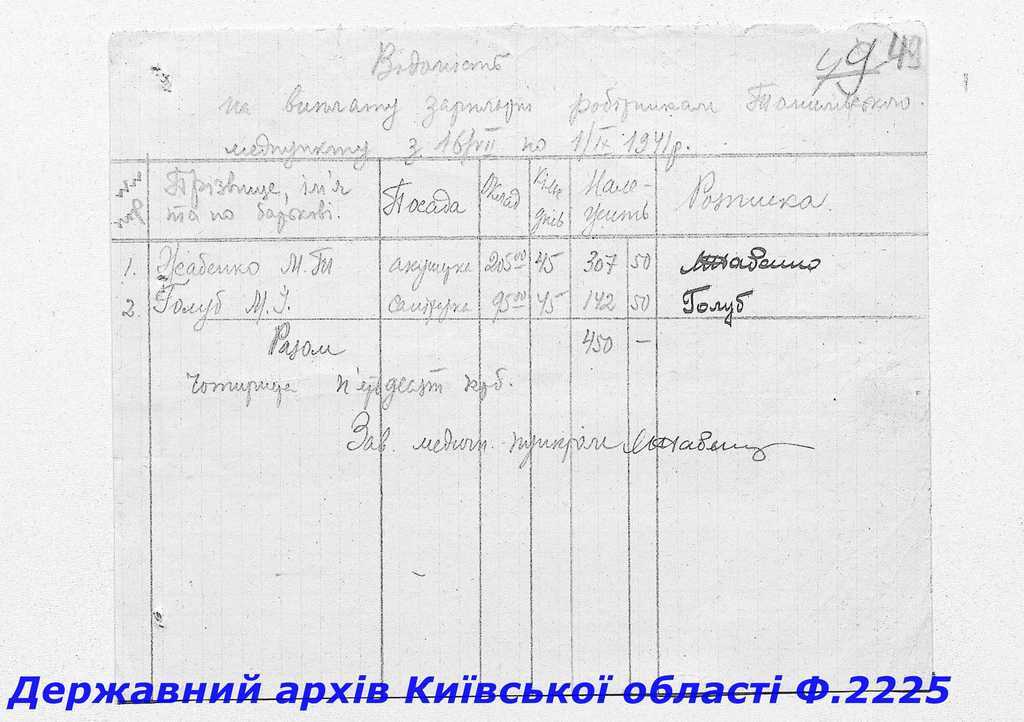 49 49
Відомість
на виплату зарплати робітникам
медпункту з 16/VII по 1/IX 1941 р.
Прізвище, ім'я та по батькові. Посада Оклад Кільк днів Нале-жить Розписка
1. Жабенко М. акушерка 205 00 45 307 50 Жабенко
2. Голуб М. І. санітарка 95 00 45 142 50 Голуб
Разом 450 —
Чотириста п'ятдесят крб.
Зав. медичн. пунктом
Державний архів Київської області Ф.2225